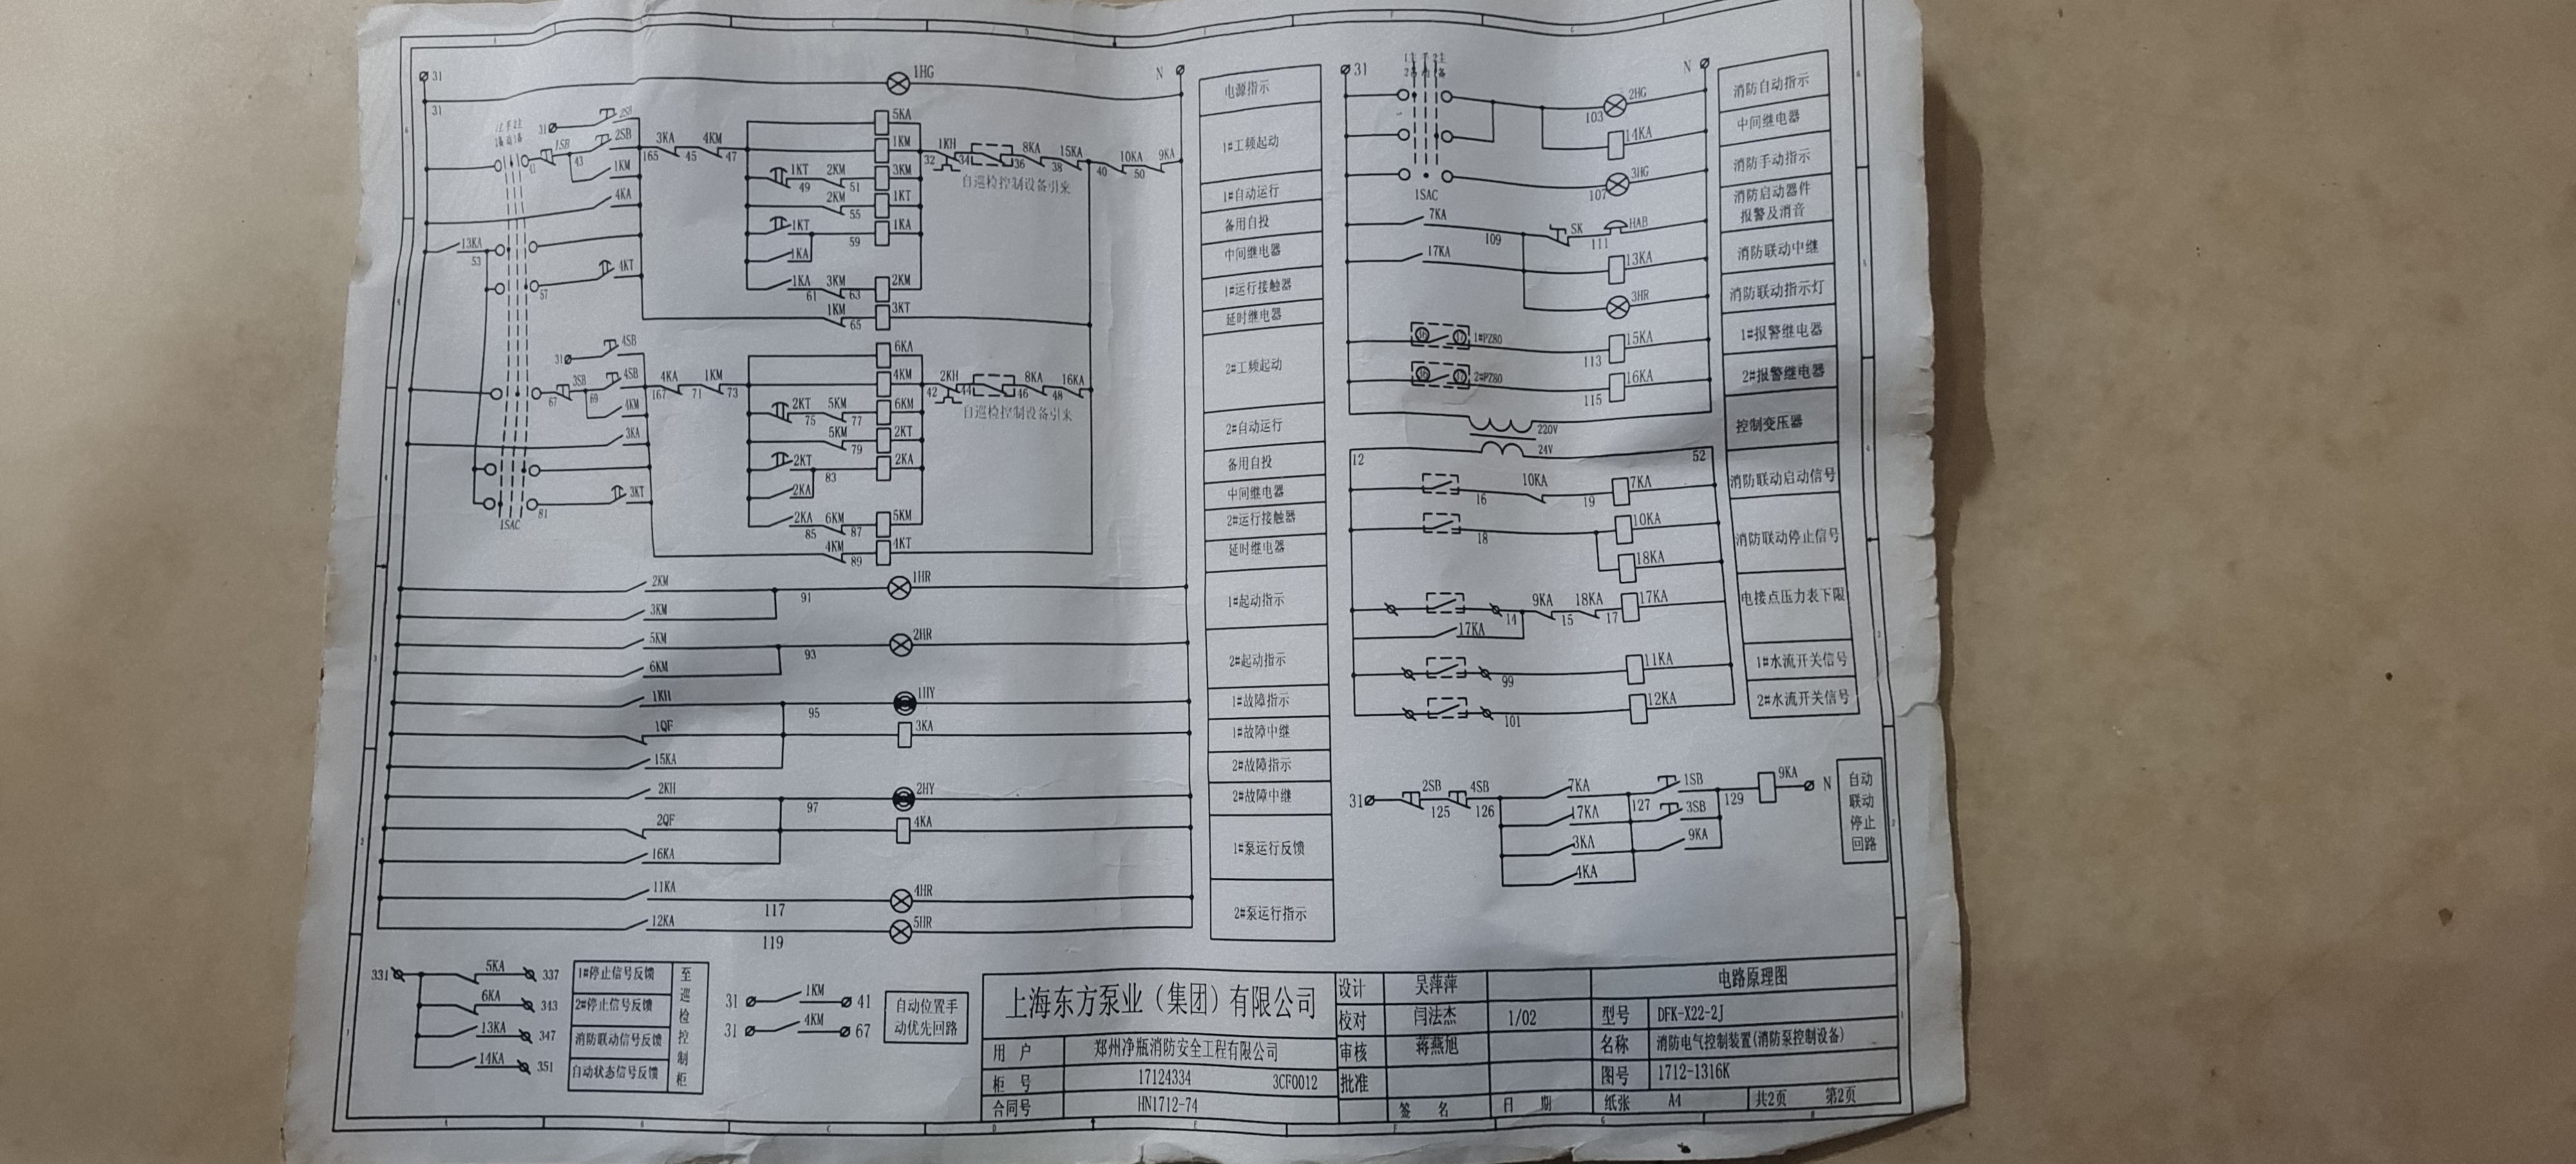 31
31
1HG
N
电源指示
31
2SB
1SB
43
2SB
1KM
165
3KA
45
4KM
47
5KA
1KM
32
1KH
34
36
8KA
38
15KA
40
10KA
50
9KA
自巡检控制设备引来
1#工频起动
1KT
49
2KM
51
3KM
2KM
55
1KT
1#自动运行
4KA
1KT
59
1KA
备用自投
13KA
53
1KA
中间继电器
57
4KT
1KA
61
3KM
63
2KM
1#运行接触器
1KM
65
3KT
延时继电器
31
4SB
6KA
67
3SB
69
4SB
167
4KA
71
1KM
73
4KM
42
2KH
44
46
8KA
48
16KA
自巡检控制设备引来
2#工频起动
4KM
2KT
75
5KM
77
6KM
3KA
5KM
79
2KT
2#自动运行
2KT
83
2KA
备用自投
2KA
中间继电器
81
3KT
1SAC
2KA
85
6KM
87
5KM
2#运行接触器
4KM
89
4KT
延时继电器
2KM
91
1HR
3KM
1#起动指示
5KM
93
2HR
6KM
2#起动指示
1KH
95
1HY
1#故障指示
1QF
3KA
1#故障中继
15KA
2#故障指示
2KH
97
2HY
2#故障中继
2QF
4KA
16KA
1#泵运行反馈
11KA
117
4HR
12KA
119
5HR
2#泵运行指示
31
N
103
2HG
消防自动指示
14KA
中间继电器
1SAC
107
3HG
消防手动指示
7KA
109
SK
111
HAB
消防启动器件
报警及消音
17KA
13KA
消防联动中继
3HR
消防联动指示灯
1#PZ80
113
15KA
1#报警继电器
2#PZ80
115
16KA
2#报警继电器
220V
24V
控制变压器
12
52
16
10KA
19
7KA
消防联动启动信号
18
10KA
18KA
消防联动停止信号
14
9KA
15
18KA
17
17KA
17KA
电接点压力表下限
99
11KA
1#水流开关信号
101
12KA
2#水流开关信号
31
2SB
125
4SB
126
7KA
127
1SB
129
9KA
N
17KA
3SB
3KA
9KA
4KA
自动
联动
停止
回路
331
5KA
337
1#停止信号反馈
6KA
343
2#停止信号反馈
13KA
347
消防联动信号反馈
14KA
351
自动状态信号反馈
至巡检控制柜
31
1KM
41
31
4KM
67
自动位置手
动优先回路
上海东方泵业（集团）有限公司
用 户
郑州净瓶消防安全工程有限公司
柜 号
17124334
3CF0012
合同号
HN1712-74
设计
吴萍萍
校对
闫法杰
1/02
审核
蒋燕旭
批准
签 名
日 期
电路原理图
型号
DFK-X22-2J
名称
消防电气控制装置(消防泵控制设备)
图号
1712-1316K
纸张
A4
共2页
第2页